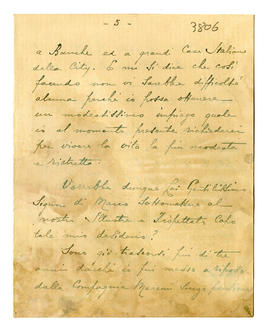 - 5 -
3806
a Banche ed a grandi Case Italiane
della City. E mi si dice che così
facendo non vi sarebbe difficoltà
alcuna perchè io possa ottenere
un modestissimo impiego quale
io al momento presente richiederei
per vivere la vita la più modesta
e ristretta.
Vorrebbe dunque Lei Gentilissimo
Signore di Marco sottomettere al
nostro Illustre e
tale mio desiderio?
Sono già trascorsi più di tre
anni dacchè io fui messo a riposo
dalla Compagnia Marconi senza pensione